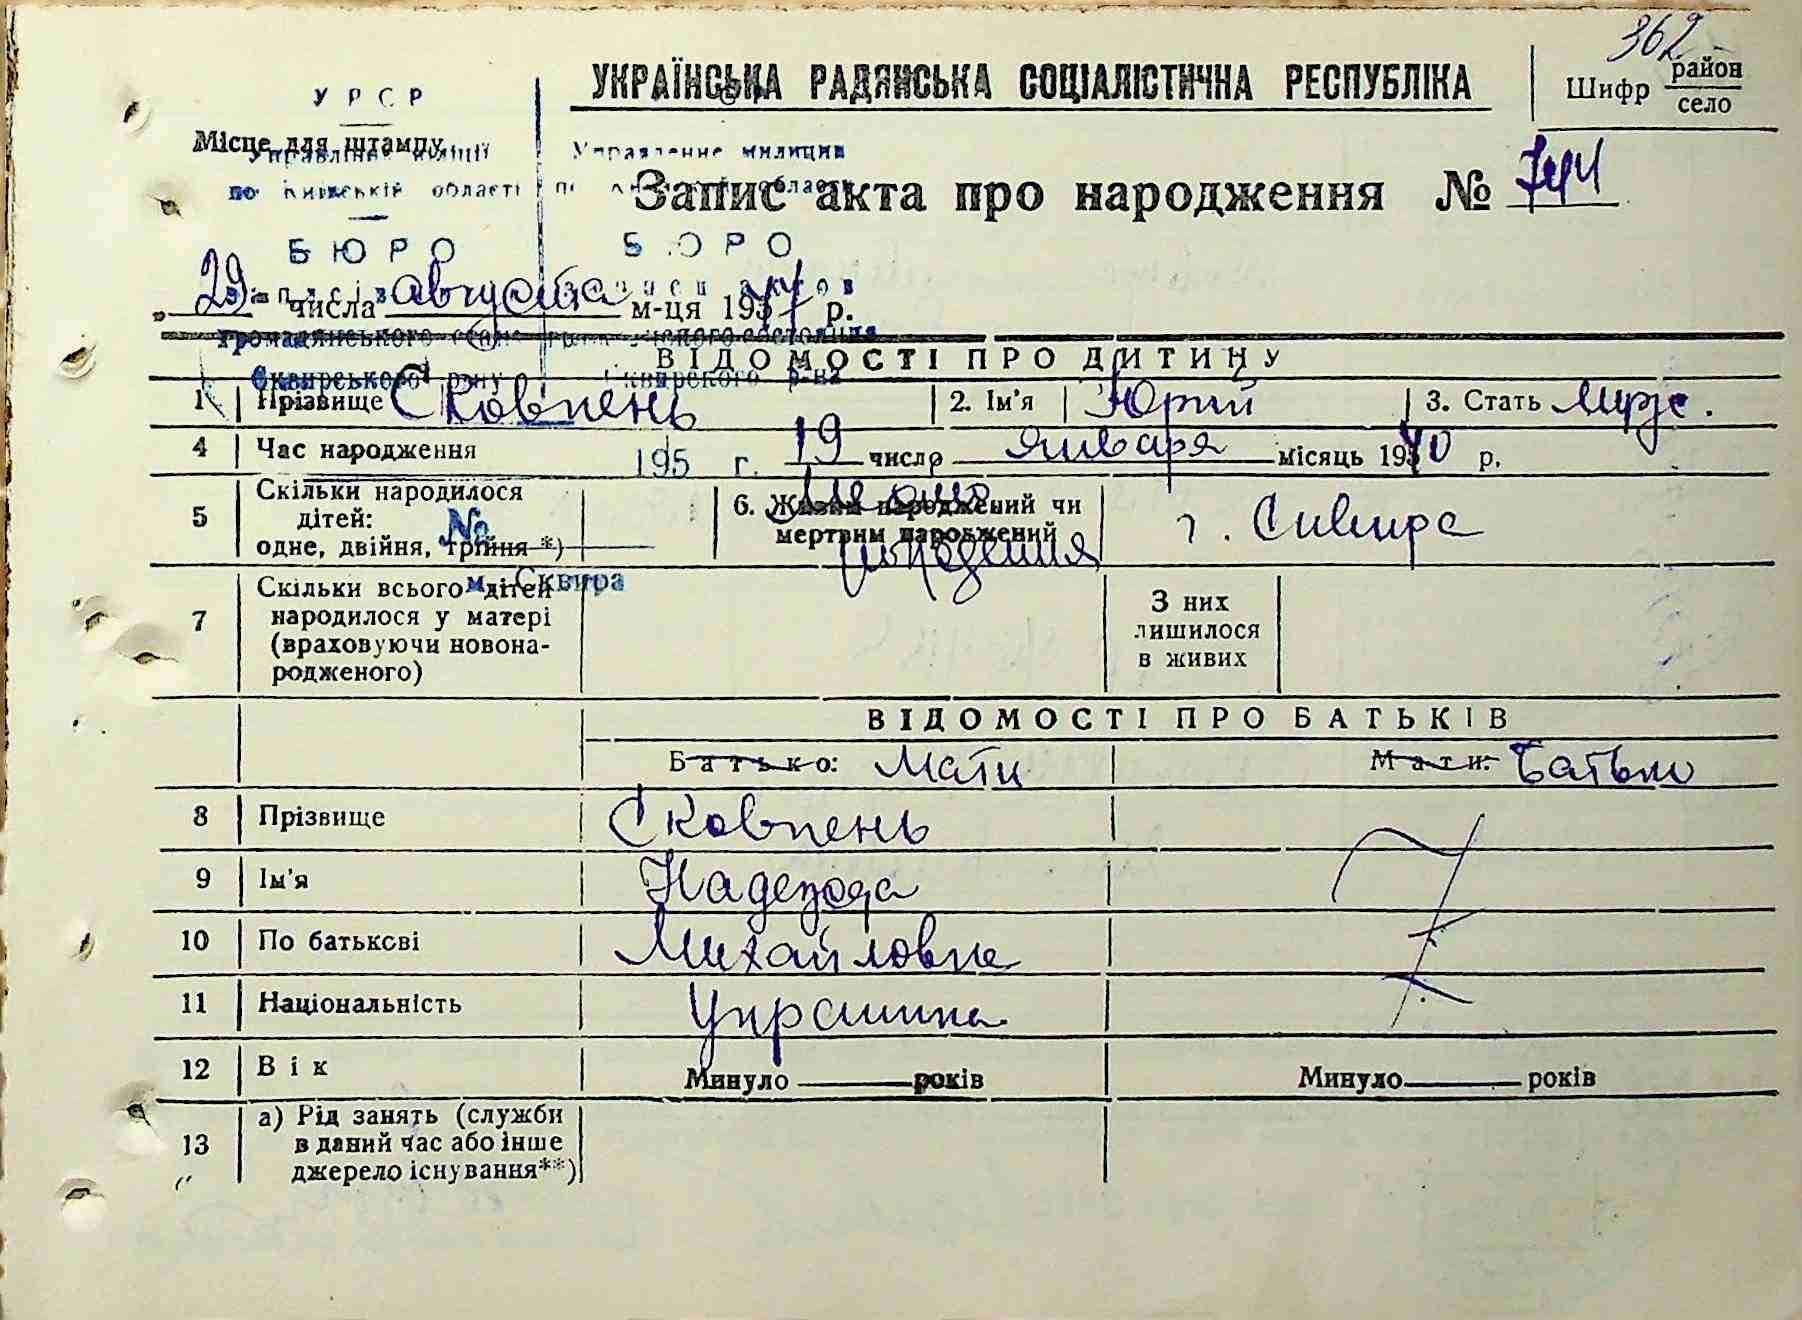 362
УКРАЇНСЬКА РАДЯНСЬКА СОЦІАЛІСТИЧНА РЕСПУБЛІКА
Шифр район
село
УРСР
Місце для штампу
Управління міліції Управление милиции
по Київській області
Запис акта про народження № 744
БЮРО БЮРО
29 числа августа м-ця 19 р.
громадянського
ВІДОМОСТІ ПРО ДИТИНУ
Сквирського р-ну Сквирского р-на
1 Прізвище Сковпень 2. Ім'я Юрий 3. Стать Муж.
4 Час народження 195 г. 19 число января місяць 1940 р.
5 Скільки народилося дітей:
одне, двійня, трійня *)
№
6. Живий народжений чи
мертвим народжений
Место
рождения
г. Сквира
м. Сквира
7 Скільки всього дітей
народилося у матері
(враховуючи новона-
родженого)
З них
лишилося
в живих
ВІДОМОСТІ ПРО БАТЬКІВ
Батько: Мати Мати: Батько
8 Прізвище Сковпень
9 Ім'я Надежда
10 По батькові Михайловна
11 Національність Украинка
12 Вік Минуло років Минуло років
13 а) Рід занять (служби
в даний час або інше
джерело існування**)